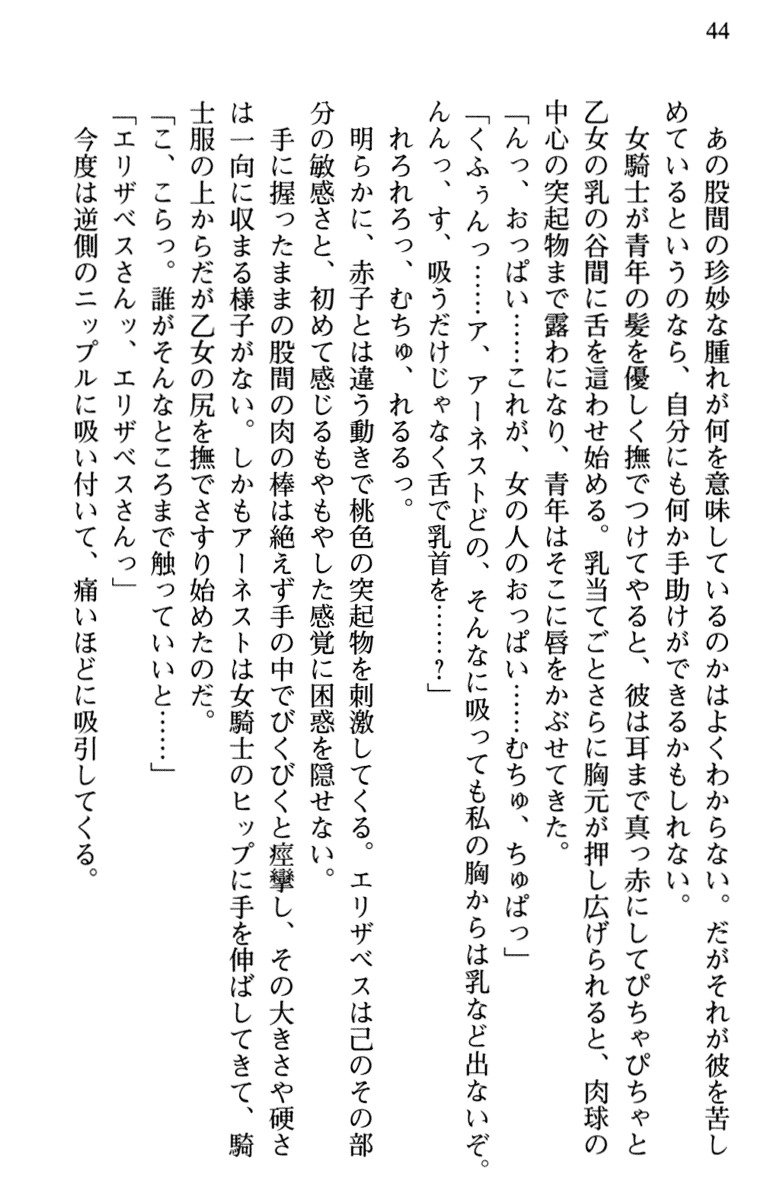 44
あの股間の珍妙な腫れが何を意味しているのかはよくわからない。だがそれが彼を苦し
めているというのなら、自分にも何か手助けができるかもしれない。
女騎士が青年の髪を優しく撫でつけてやると、彼は耳まで真っ赤にしてぴちゃぴちゃと
乙女の乳の谷間に舌を這わせ始める。乳当てごとさらに胸元が押し広げられると、肉球の
中心の突起物まで露わになり、青年はそこに唇をかぶせてきた。
「んっ、おっぱい……これが、女の人のおっぱい……むちゅ、ちゅぱっ」
「くふぅんっ……ア、アーネストどの、そんなに吸っても私の胸からは乳など出ないぞ。
んんっ、す、吸うだけじゃなく舌で乳首を……？」
れろれろっ、むちゅ、れるるっ。
明らかに、赤子とは違う動きで桃色の突起物を刺激してくる。エリザベスは己のその部
分の敏感さと、初めて感じるもやもやした感覚に困惑を隠せない。
手に握ったままの股間の肉の棒は絶えず手の中でびくびくと痙攣し、その大きさや硬さ
は一向に収まる様子がない。しかもアーネストは女騎士のヒップに手を伸ばしてきて、騎
士服の上からだが乙女の尻を撫でさすり始めたのだ。
「こ、こらっ。誰がそんなところまで触っていいと……」
「エリザベスさんッ、エリザベスさんっ」
今度は逆側のニップルに吸い付いて、痛いほどに吸引してくる。